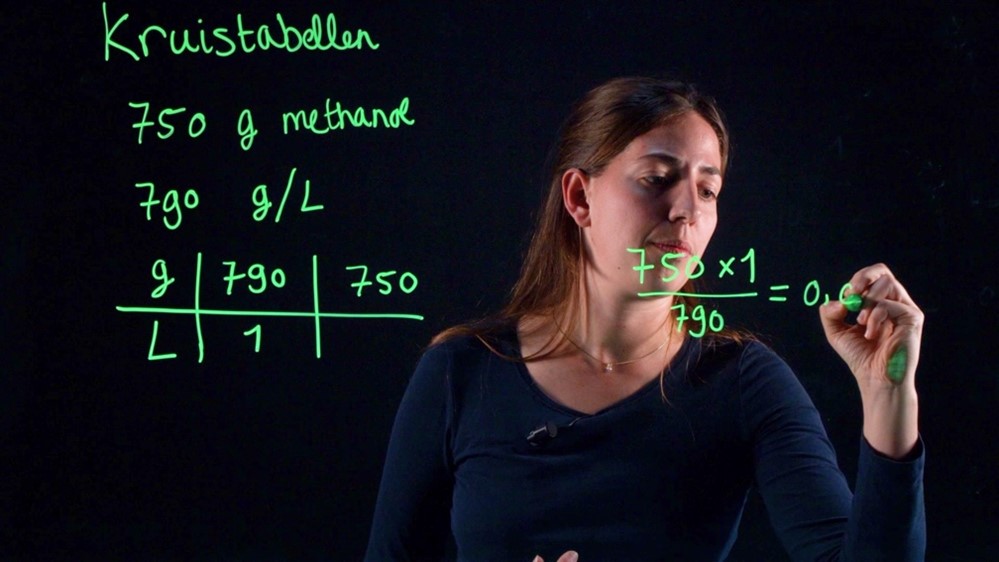 Kruistabellen
750 g methanol
790 g/L
g | 790 | 750
L | 1 |
750 x 1
790
= 0,